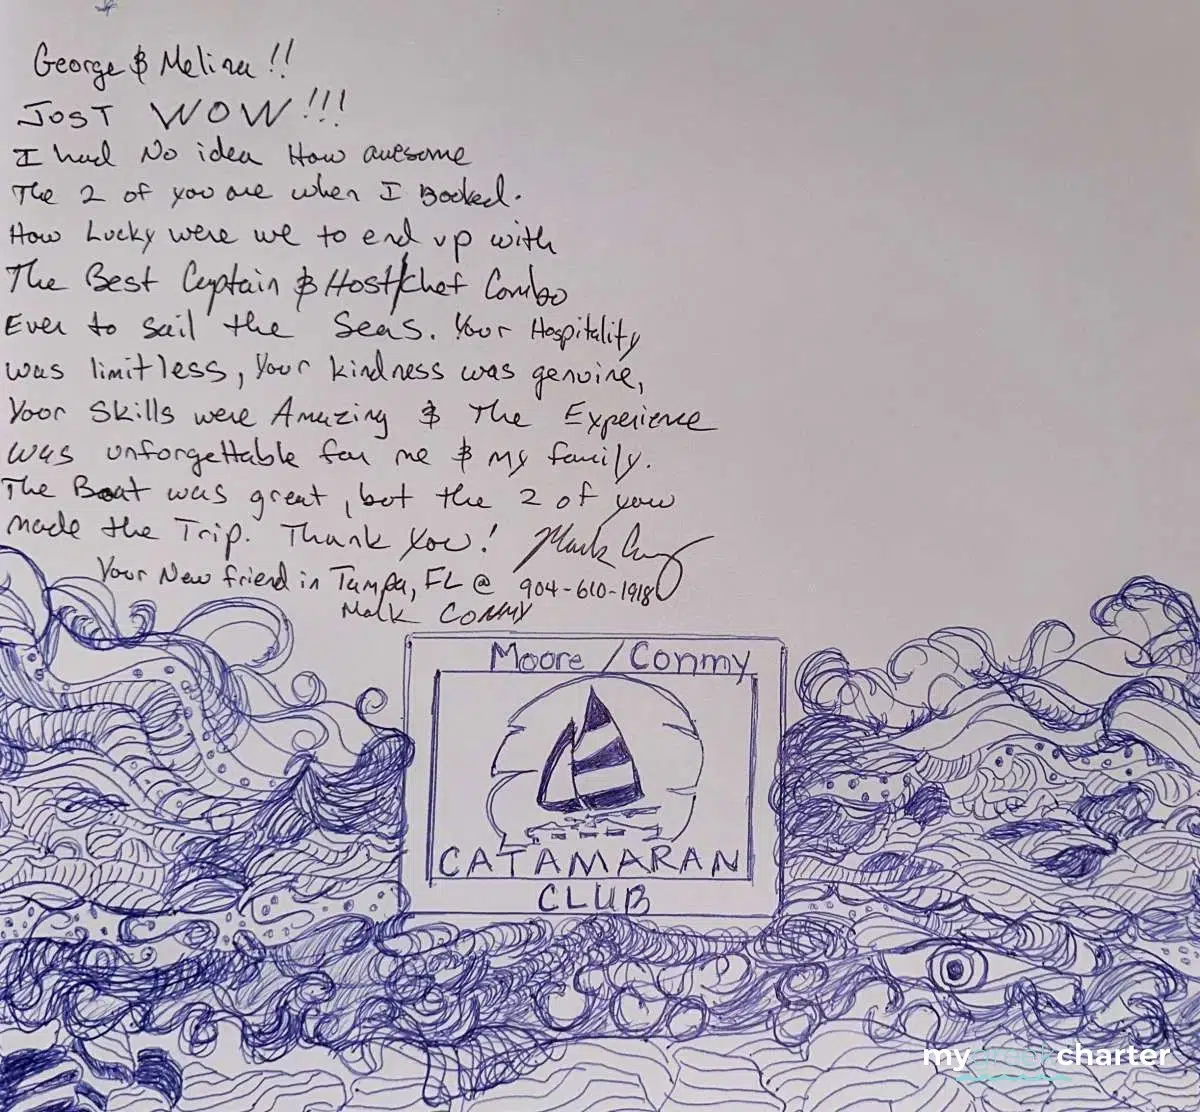 George & Melina!!
JUST WOW!!!
I had No idea How awesome
The 2 of you are when I Booked.
How Lucky were we to end up with
The Best Captain & Host/Chef Combo
Ever to sail the Seas. Your Hospitality
was limitless, Your kindness was genuine,
Your Skills were Amazing & The Experience
was unforgettable for me & my family.
The Boat was great, but the 2 of you
made the Trip. Thank You! Mark Conmy
Your New friend in Tampa, FL @ 904-610-1918
Mark CONMY
Moore / Conmy
CATAMARAN
CLUB
mygreekcharter